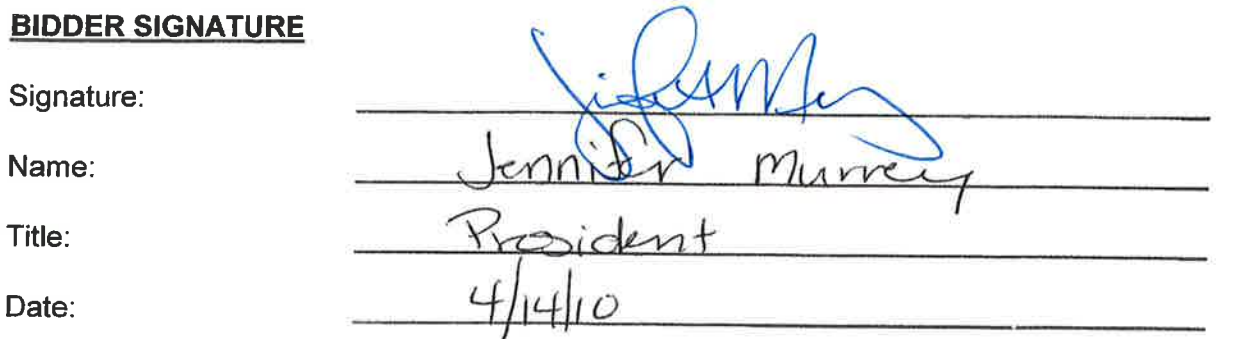 BIDDER SIGNATURE
Signature:
Name: Jennifer Murrey
Title: President
Date: 4/14/10